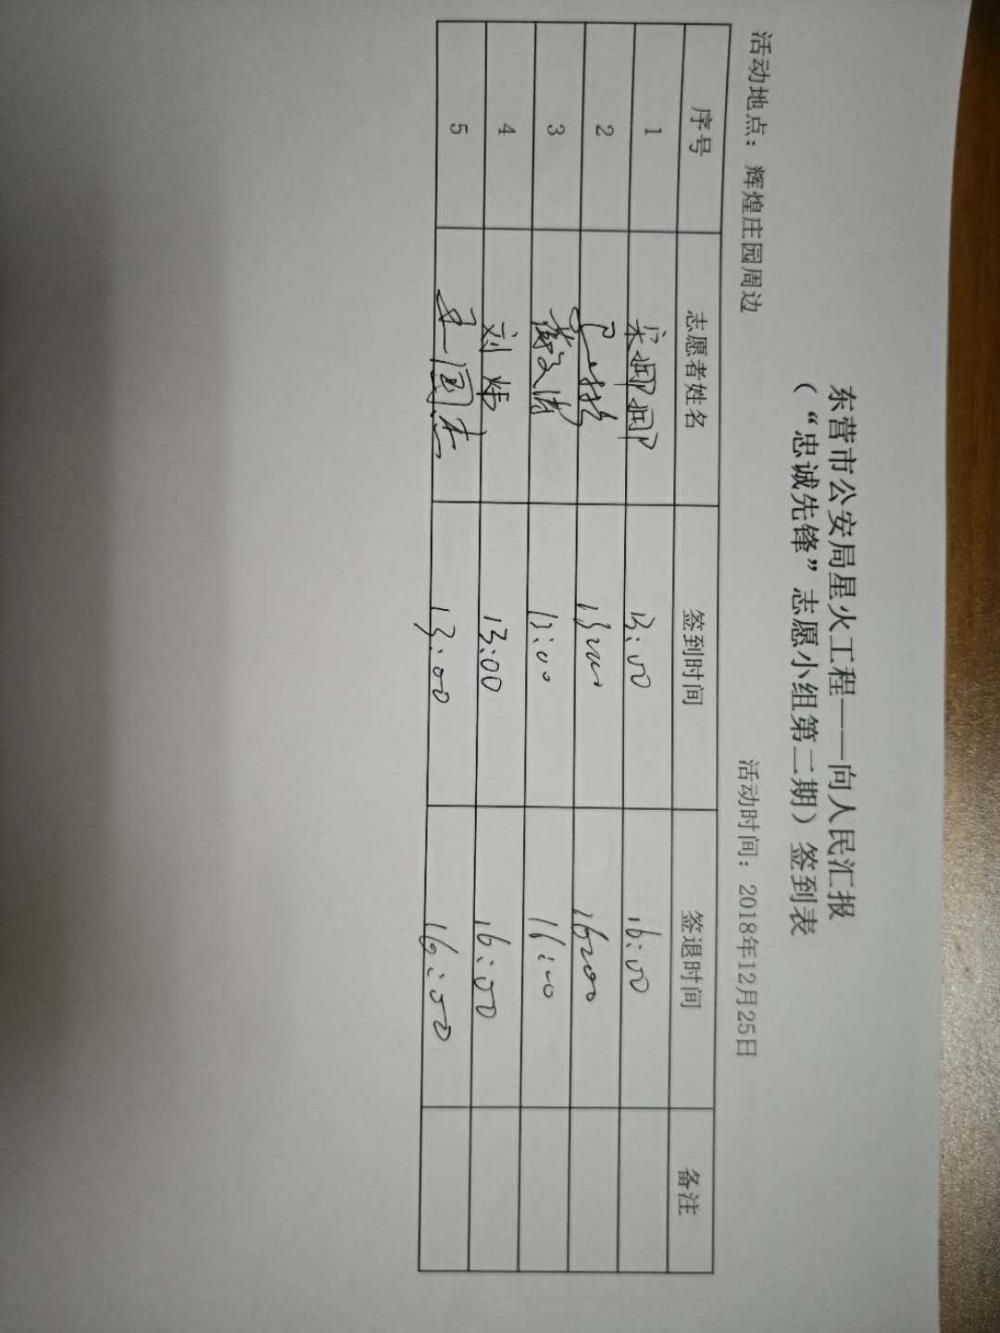 东营市公安局星火工程——向人民汇报
（“忠诚先锋”志愿小组第二期）签到表
活动地点：辉煌庄园周边 活动时间：2018年12月25日
序号 志愿者姓名 签到时间 签退时间 备注
1 宋娜娜 13:00 16:00
2 13:00 16:00
3 13:00 16:00
4 刘炜 13:00 16:00
5 王国杰 13:00 16:00